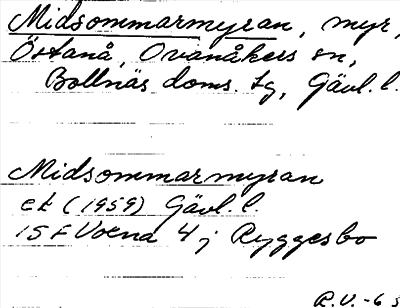 Midsommarmyran, myr,
Östanå, Ovanåkers sn,
Bollnäs doms. tg, Gävl. l.
Midsommarmyran
ek (1959) Gävl. l.
15 F Voxna 4 j Ryggesbo
R.V. -6